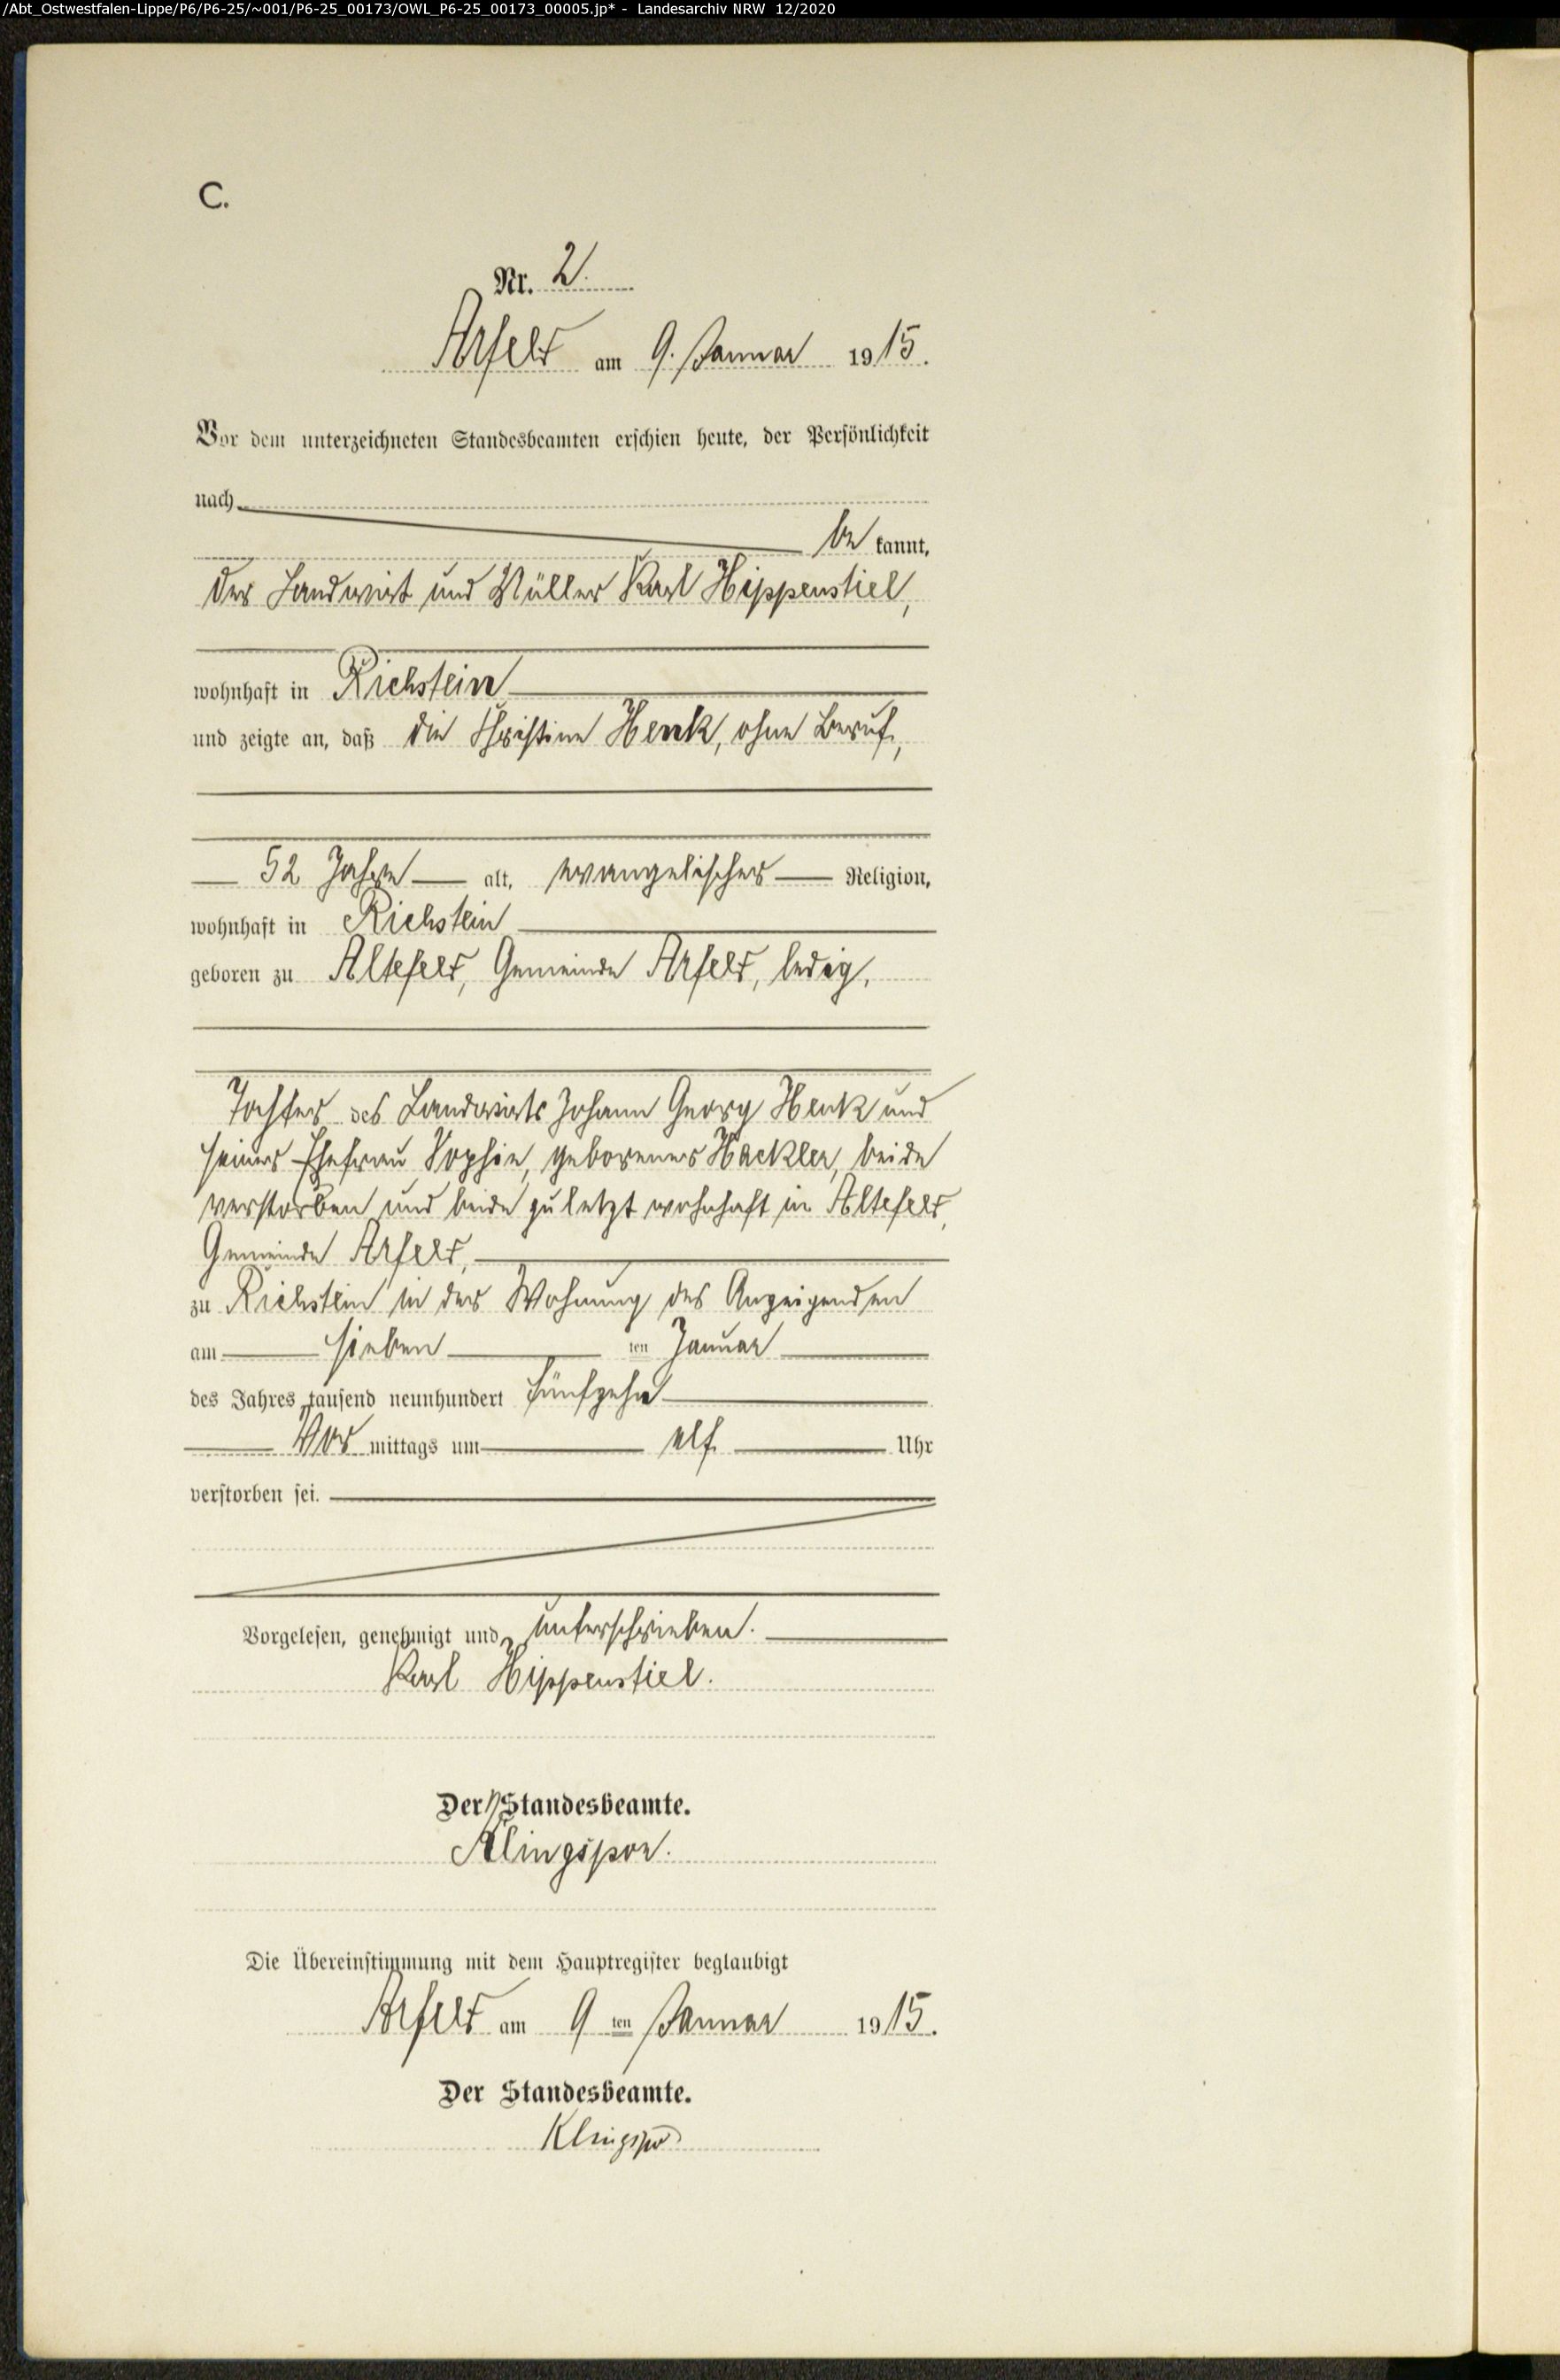 /Abt_Ostwestfalen-Lippe/P6/P6-25/~001/P6-25_00173/OWL_P6-25_00173_00005.jp* - Landesarchiv NRW 12/2020
C.
Nr. 2.
Arfeld am 9. Januar 1915.
Vor dem unterzeichneten Standesbeamten erschien heute, der Persönlichkeit
nach
be kannt,
der Landwirt und Müller Karl Hippenstiel,
wohnhaft in Richstein
und zeigte an, daß die Christine Henk, ohne Beruf,
52 Jahre alt, evangelischer Religion,
wohnhaft in Richstein
geboren zu Altefeld, Gemeinde Arfeld, ledig,
Tochter des Landwirts Johann Georg Henk und
seiner Ehefrau Sophie, geborener Hackler, beide
verstorben und beide zuletzt wohnhaft in Altefeld,
Gemeinde Arfeld,
zu Richstein in der Wohnung des Anzeigenden
am sieben ten Januar
des Jahres tausend neunhundert fünfzehn
Vor mittags um elf Uhr
verstorben sei.
Vorgelesen, genehmigt und unterschrieben.
Karl Hippenstiel.
Der Standesbeamte.
Klingspor.
Die Übereinstimmung mit dem Hauptregister beglaubigt
Arfeld am 9 ten Januar 1915.
Der Standesbeamte.
Klingspor